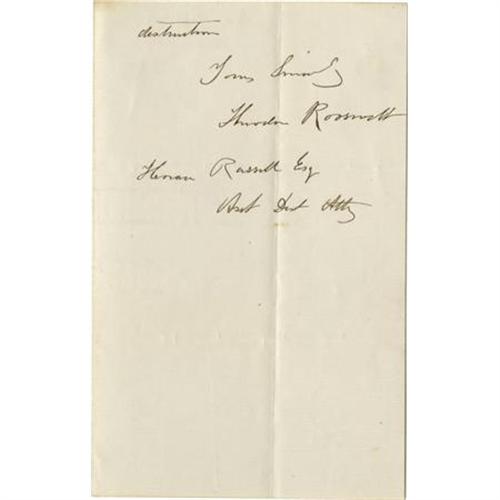 destruction
Yours Sincerely
Theodore Roosevelt
Horace Russell Esq
Asst Dist Atty